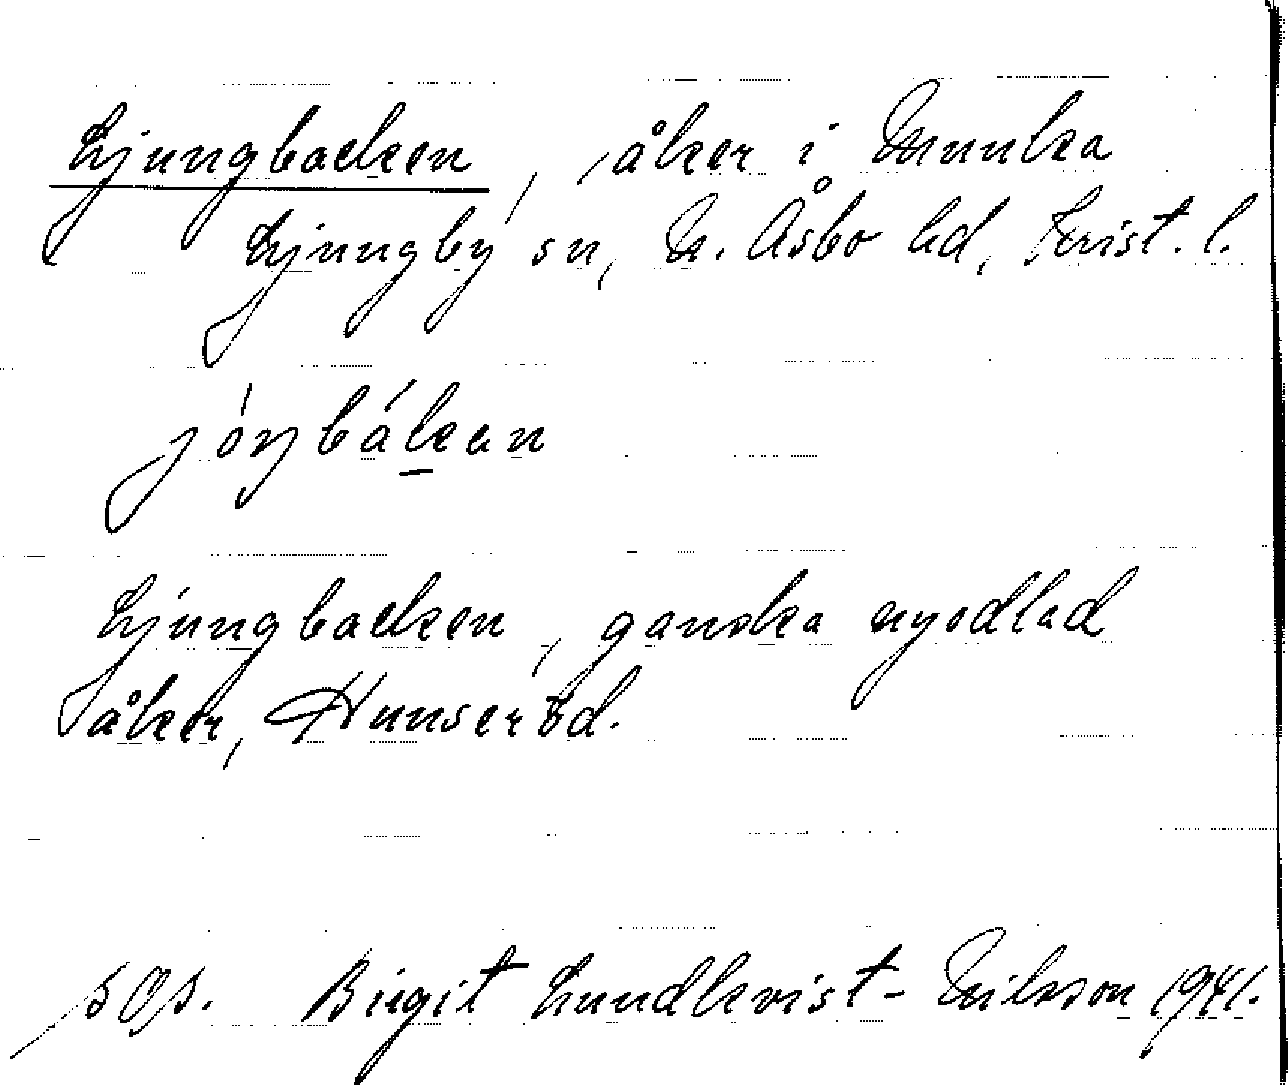 Ljungbacken, åker i Munka
Ljungby sn, N. Åsbo hd, Krist. l.
jóŋbákan
Ljungbacken, ganska nyodlad
åker, Hunseröd.
sgs. Birgit Lundkvist-Nilsson 1941.